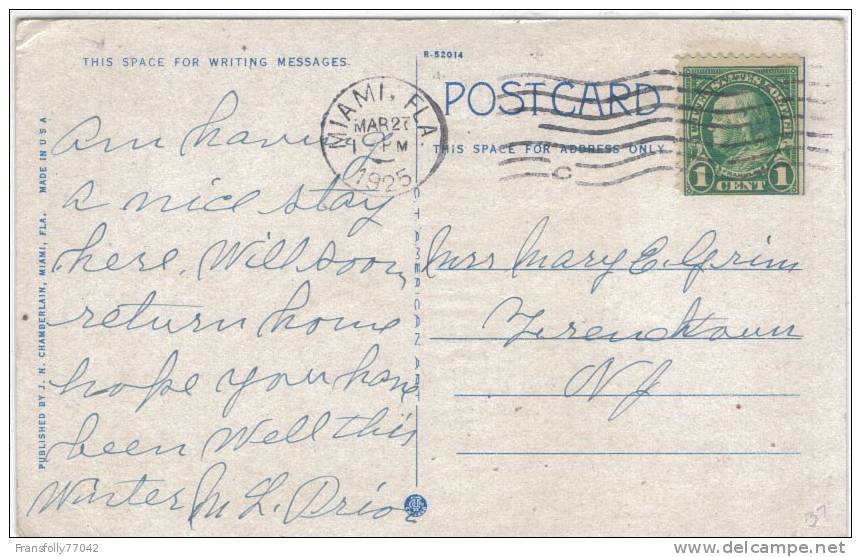 R-52014
THIS SPACE FOR WRITING MESSAGES.
POST CARD
THIS SPACE FOR ADDRESS ONLY.
MIAMI, FLA.
MAR 27
1 PM
1925
C
UNITED STATES POSTAGE
FRANKLIN
1 CENT 1
am having
a nice stay
here, Will soon
return home
hope you have
been well this
Winter M L Prior
Mrs Mary E. Grim
Frenchtown
NJ
PUBLISHED BY J. N. CHAMBERLAIN, MIAMI, FLA. MADE IN U S A
CTAMERICAN ART
37
Fransfolly77042
delcampe.net